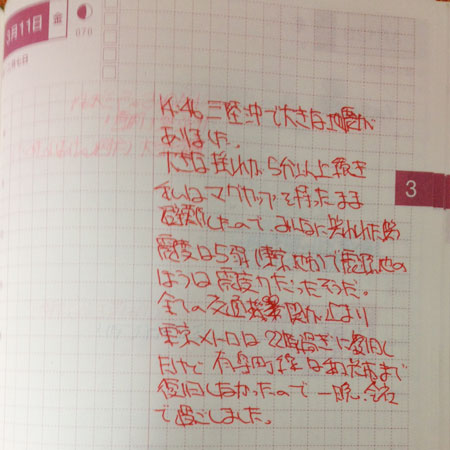 3月11日 金
070
3
14:46 三陸沖で大きな地震が
ありました。
大きな揺れが 5分以上続き
私は マグカップを持ったまま
したので みんなに笑われた
震度は5弱(東京地方)で震源地の
ほうは震度7だったそうだ。
全ての交通機関が止まり
東京メトロは 22時過ぎに復旧し
有楽町線は まで
復旧しなかったので 一晩 会社
で過ごしました。